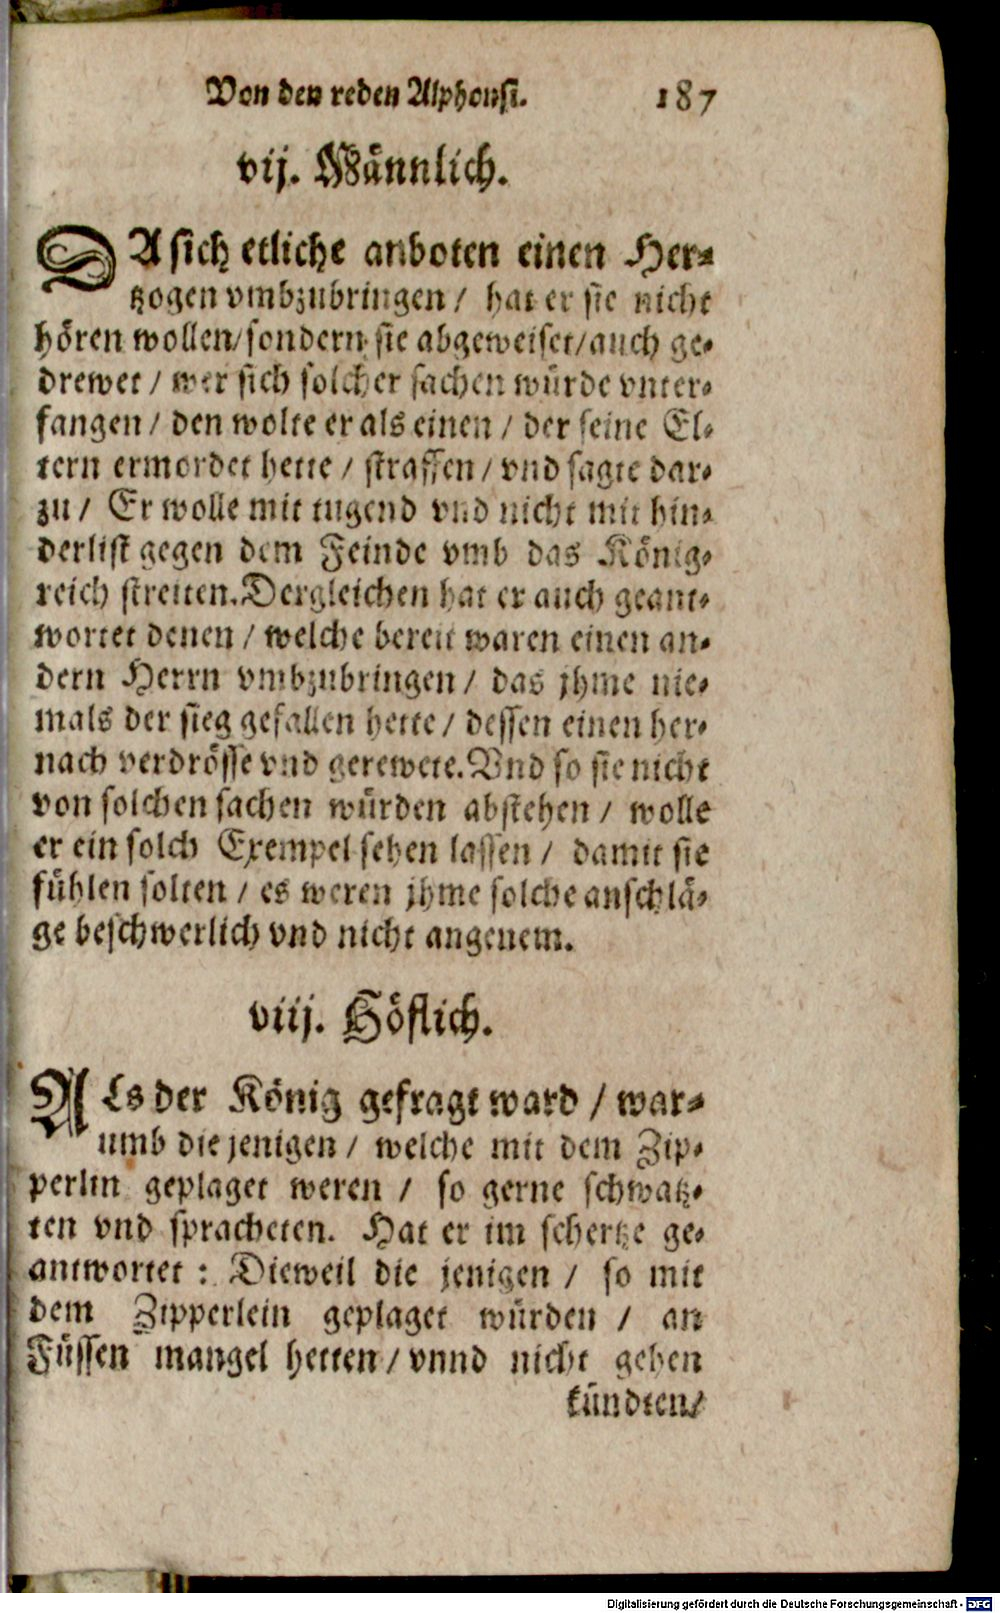 Von den reden Alphonsi. 187
vij. Männlich.
DA sich etliche anboten einen Her-
tzogen vmbzubringen / hat er sie nicht
hören wollen/sondern sie abgeweiset/auch ge-
drewet / wer sich solcher sachen würde vnter-
fangen / den wolte er als einen / der seine El-
tern ermordet hette / straffen / vnd sagte dar-
zu / Er wolle mit tugend vnd nicht mit hin-
derlist gegen dem Feinde vmb das König-
reich streiten. Dergleichen hat er auch geant-
wortet denen / welche bereit waren einen an-
dern Herrn vmbzubringen / das jhme nie-
mals der sieg gefallen hette / dessen einen her-
nach verdrösse vnd gerewete. Vnd so sie nicht
von solchen sachen würden abstehen / wolle
er ein solch Exempel sehen lassen / damit sie
fühlen solten / es weren jhme solche anschlä-
ge beschwerlich vnd nicht angenem.
viij. Höflich.
ALs der König gefragt ward / war-
umb die jenigen / welche mit dem Zip-
perlin geplaget weren / so gerne schwatz-
ten vnd spracheten. Hat er im schertze ge-
antwortet : Dieweil die jenigen / so mit
dem Zipperlein geplaget würden / an
Füssen mangel hetten / vnnd nicht gehen
kündten/
Digitalisierung gefördert durch die Deutsche Forschungsgemeinschaft - DFG